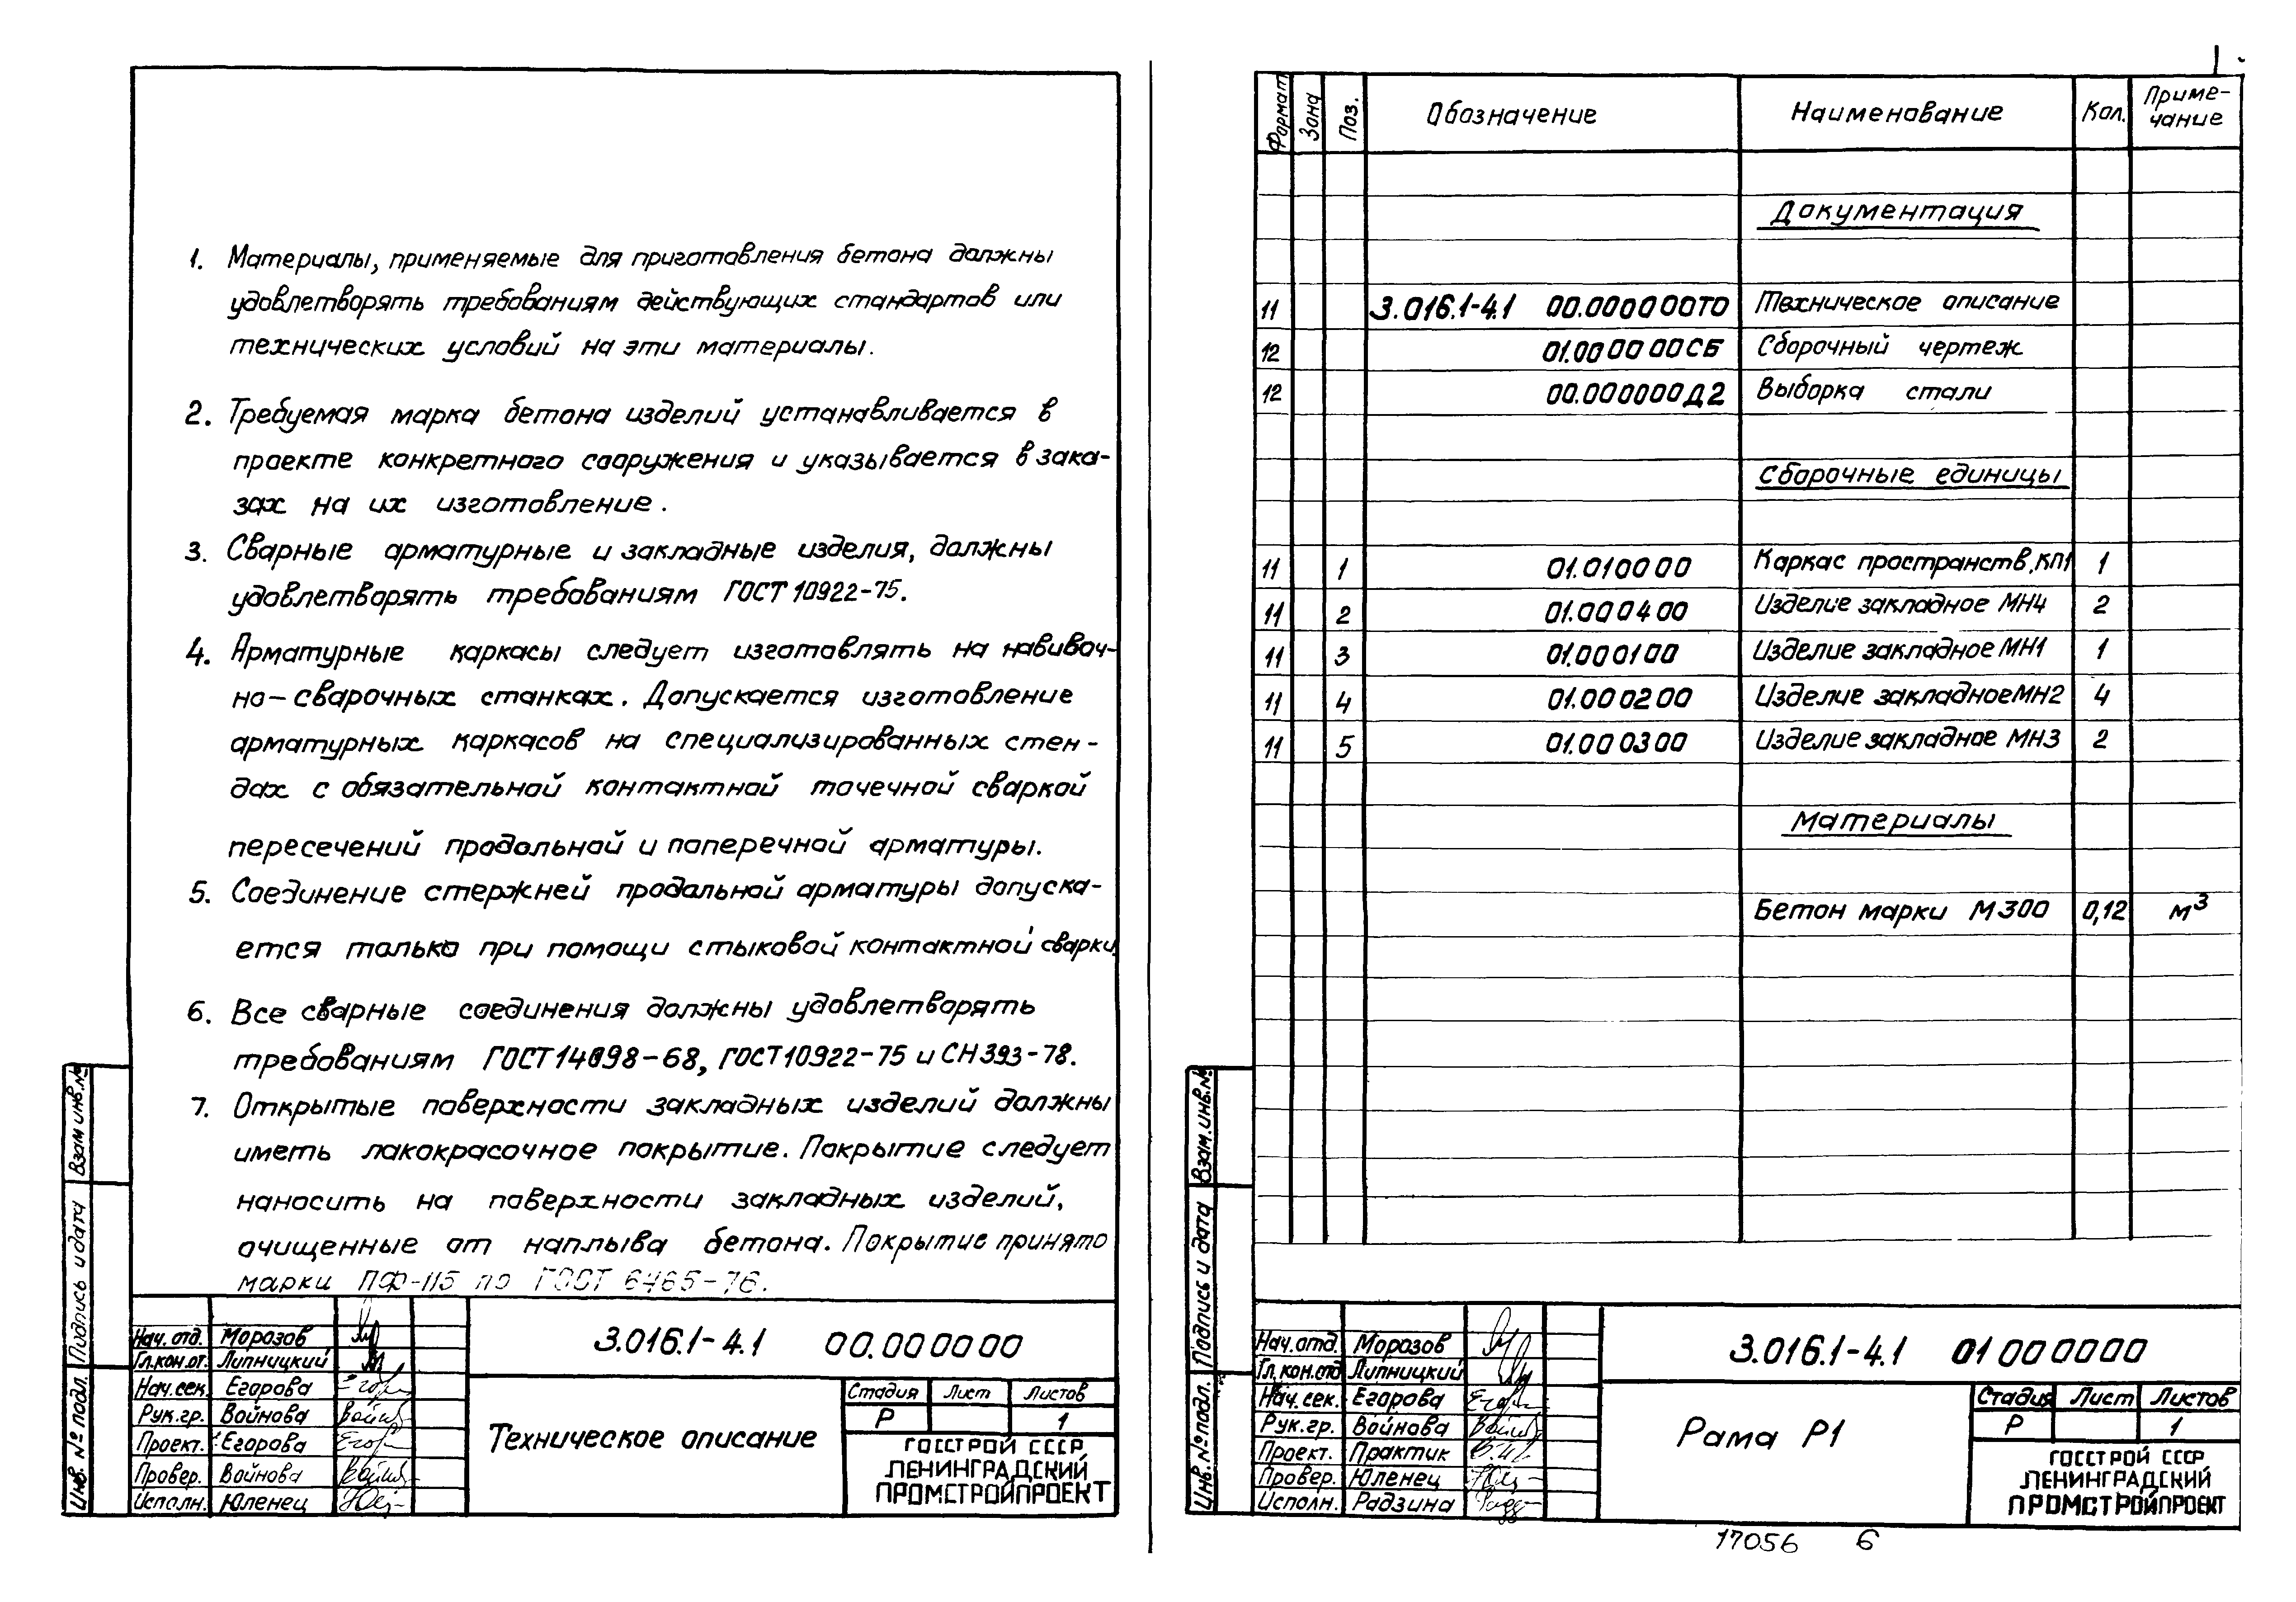 1. Материалы, применяемые для приготовления бетона должны
удовлетворять требованиям действующих стандартов или
технических условий на эти материалы.
2. Требуемая марка бетона изделий устанавливается в
проекте конкретного сооружения и указывается в зака-
зах на их изготовление.
3. Сварные арматурные и закладные изделия, должны
удовлетворять требованиям ГОСТ 10922-75.
4. Арматурные каркасы следует изготовлять на навивоч-
но-сварочных станках. Допускается изготовление
арматурных каркасов на специализированных стен-
дах с обязательной контактной точечной сваркой
пересечений продольной и поперечной арматуры.
5. Соединение стержней продольной арматуры допуска-
ется только при помощи стыковой контактной сварки.
6. Все сварные соединения должны удовлетворять
требованиям ГОСТ 14098-68, ГОСТ 10922-75 и СН 393-78.
7. Открытые поверхности закладных изделий должны
иметь лакокрасочное покрытие. Покрытие следует
наносить на поверхности закладных изделий,
очищенные от наплыва бетона. Покрытие принято
марки ПФ-115 по ГОСТ 6465-76.
Взам инв.№
Подпись и дата
Инв. № подл.
Нач. отд. Морозов
Гл.кон.от. Липницкий
Нач. сек. Егорова
Рук.гр. Войнова
Проект. Егорова
Провер. Войнова
Исполн. Юленец
3.016.1-4.1 00.000000
Техническое описание
Стадия Лист Листов
Р 1
ГОССТРОЙ СССР
ЛЕНИНГРАДСКИЙ
ПРОМСТРОЙПРОЕКТ
Формат Зона Поз. Обозначение Наименование Кол. Приме-
чание
Документация
11 3.016.1-4.1 00.000000ТО Техническое описание
12 01.000000СБ Сборочный чертеж
12 00.000000Д2 Выборка стали
Сборочные единицы
11 1 01.010000 Каркас пространств.КП1 1
11 2 01.000400 Изделие закладное МН4 2
11 3 01.000100 Изделие закладное МН1 1
11 4 01.000200 Изделие закладное МН2 4
11 5 01.000300 Изделие закладное МН3 2
Материалы
Бетон марки М300 0,12 м³
Взам.инв.№
Подпись и дата
Инв.№ подл.
Нач. отд. Морозов
Гл. кон.отд Липницкий
Нач. сек. Егорова
Рук.гр. Войнова
Проект. Практик
Провер. Юленец
Исполн. Радзина
3.016.1-4.1 01 000000
Рама Р1
Стадия Лист Листов
Р 1
ГОССТРОЙ СССР
ЛЕНИНГРАДСКИЙ
ПРОМСТРОЙПРОЕКТ
17056 6